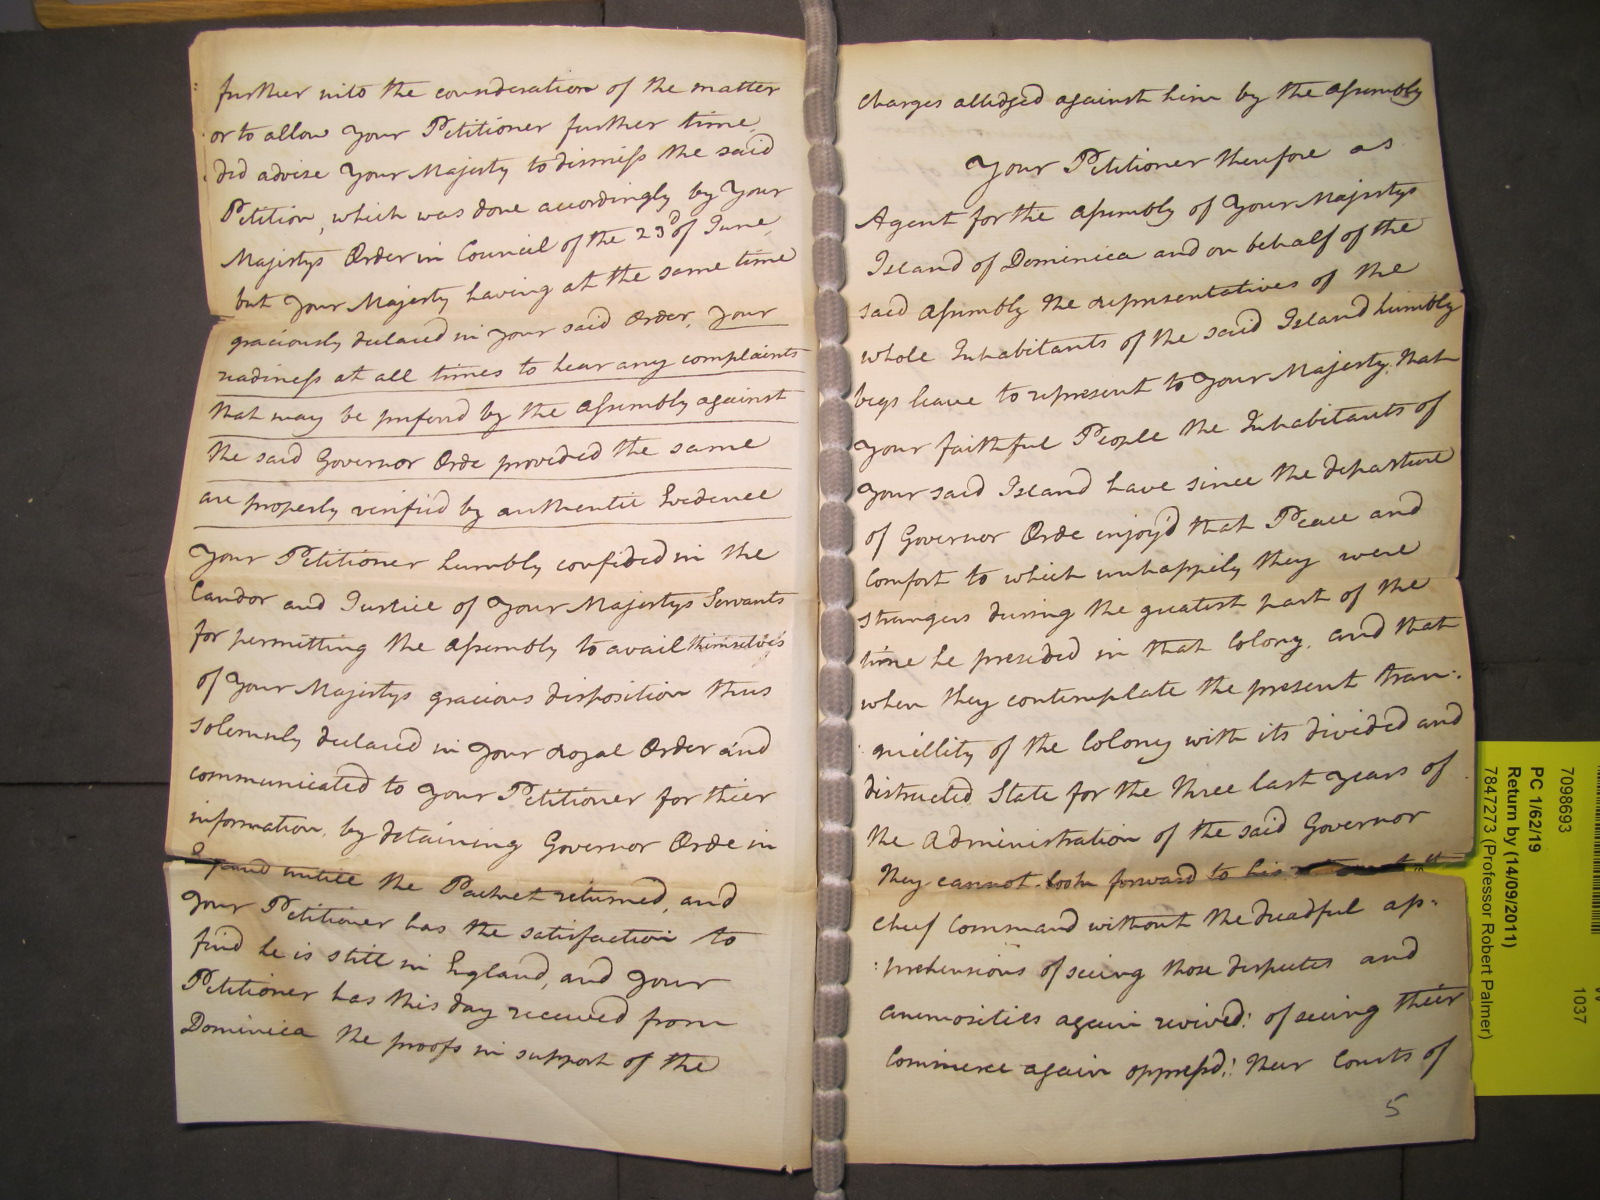 further into the consideration of the matter
or to allow your Petitioner further time,
did advise Your Majesty to dismiss the said
Petition, which was done accordingly by Your
Majestys Order in Council of the 23d of June,
but Your Majesty having at the same time
graciously declared in your said Order, your
readiness at all times to hear any complaints
that may be preferd by the Assembly against
the said Governor Orde provided the same
are properly verified by authentic Evidence
Your Petitioner humbly confided in the
Candor and Justice of Your Majestys Servants
for permitting the Assembly to avail themselves
of Your Majestys gracious disposition thus
solemnly declared in your Royal Order and
communicated to your Petitioner for their
information, by detaining Governor Orde in
England untill the Packet returned, and
your Petitioner has the satisfaction to
find he is still in England, and your
Petitioner has this day received from
Dominica the proofs in support of the
charges alledged against him by the Assembly
Your Petitioner therefore as
Agent for the Assembly of Your Majestys
Island of Dominica and on behalf of the
said Assembly the representatives of the
whole Inhabitants of the said Island humbly
begs leave to represent to Your Majesty, that
your faithful People the Inhabitants of
your said Island have since the departure
of Governor Orde enjoy'd that Peace and
Comfort to which unhappily they were
strangers during the greatest part of the
time he presided in that Colony, and that
when they contemplate the present tran:
:quillity of the Colony with its divided and
distracted State for the three last years of
the Administration of the said Governor
they cannot look forward to his
chief Command without the dreadful ap:
:prehensions of seeing those disputes and
animosities again revived: of seeing their
Commerce again oppress'd: their Courts of
5
7098693
PC 1/62/19
Return by (14/09/2011)
7847273 (Professor Robert Palmer)
1037